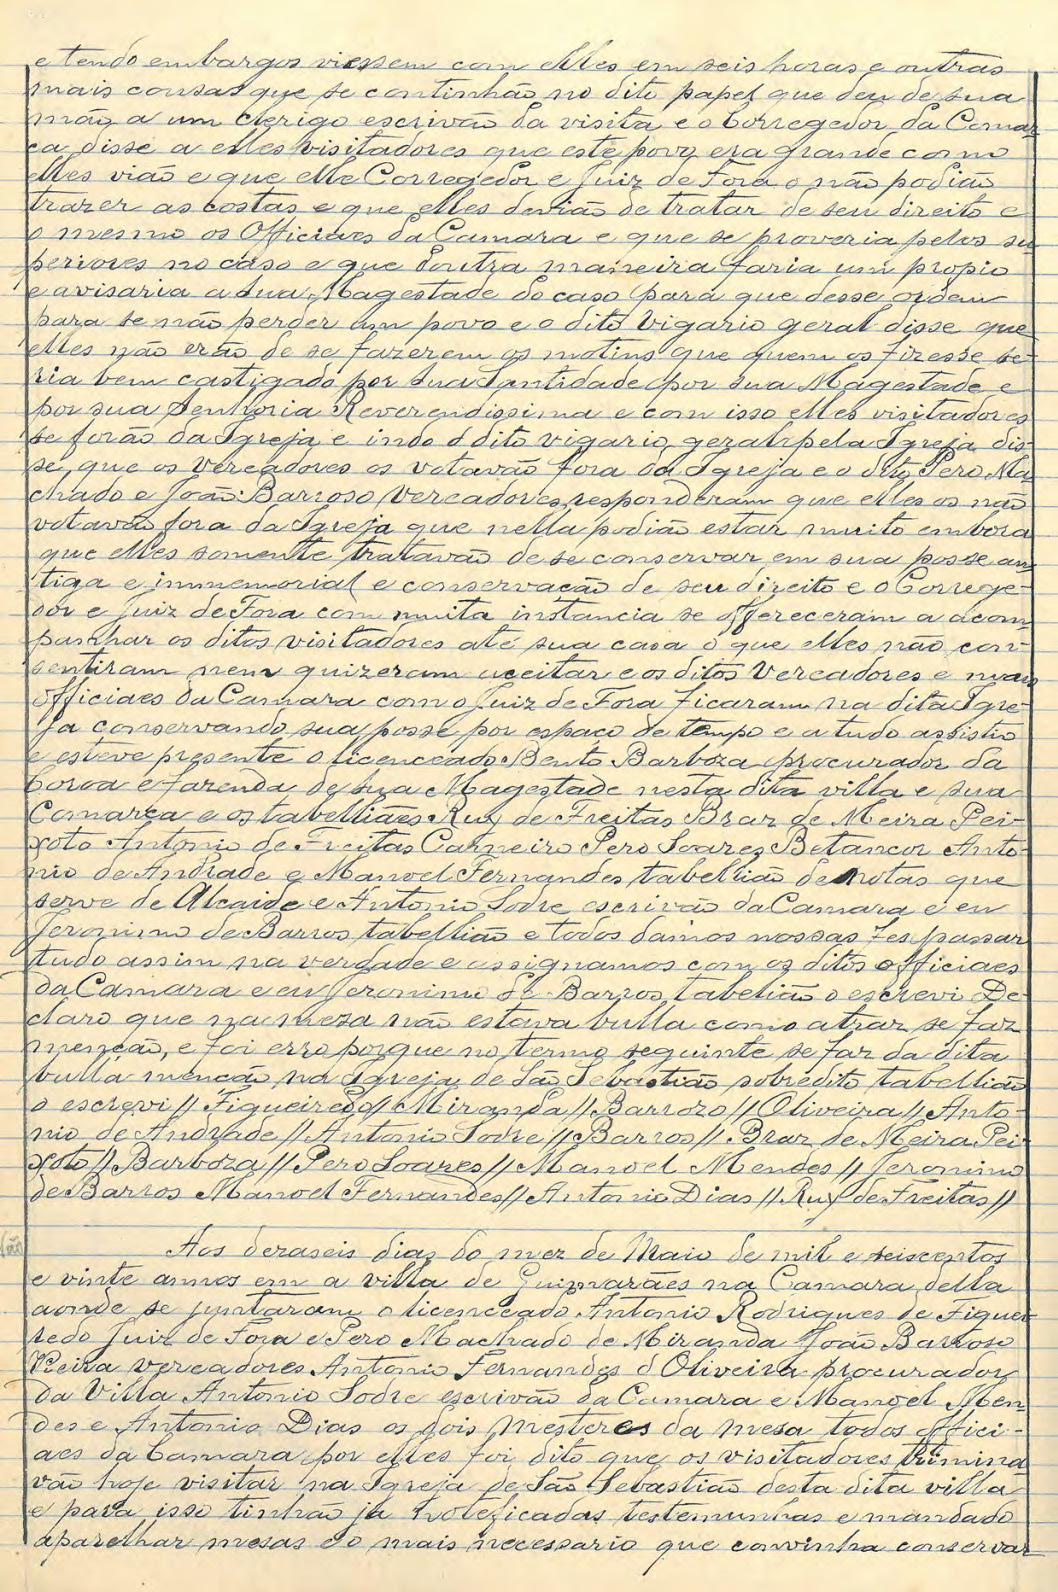 e tendo embargos viessem com elles em seis horas e outras
mais cousas que se continhão no dito papel que deu de sua
mão a um clerigo escrivão da visita e o Corregedor da Comar
ca disse a elles visitadores que este povo era grande como
elles vião e que elle Corregedor e Juiz de Fora o não podião
trazer as costas e que elles devião de tratar de seu direito e
o mesmo os Officiaes da Camara e que se proveria pelos su
periores no caso e que doutra maneira faria um propio
e avisaria a sua Magestade do caso para que desse ordem
para se não perder um povo e o dito vigario geral disse que
elles não erão de se fazerem os motins que quem os fizesse se-
ria bem castigado por sua Santidade por sua Magestade e
por sua Senhoria Reverendissima e com isso elles visitadores
se forão da Igreja e indo o dito vigario geral pela Igreja dis-
se que os Vereadores os votavão fora da Igreja e o dito Pero Ma
chado e João Barroso Vereadores responderam que elles os não
votavão fora da Igreja que nella podião estar muito embora
que elles somente tratavão de se conservar em sua posse an
tiga e immemorial e conservação de seu direito e o Correge-
dor e Juiz de Fora com muita instancia se offereceram a acom
panhar os ditos visitadores até sua casa o que elles não con-
sentiram nem quizeram aceitar e os ditos Vereadores e mais
officiaes da Camara com o Juiz de Fora ficaram na dita Igre-
ja conservando sua posse por espaço de tempo e a tudo assistio
e esteve presente o licenceado Bento Barboza procurador da
Coroa e fazenda de sua Magestade nesta dita villa e sua
Comarca e os tabelliães Ruy de Freitas Braz de Meira Pei-
xoto Antonio de Freitas Carneiro Pero Soares Betancor Anto-
nio de Andrade e Manoel Fernandes tabellião de notas que
serve de Alcaide e Antonio Sodre escrivão da Camara e eu
Jeronimo de Barros tabellião e todos damos nossas fes passar
tudo assim na verdade e assignamos com os ditos officiaes
da Camara e eu Jeronimo de Barros tabelião o escrevi De-
claro que na meza não estava bulla como atraz se faz
menção, e foi erro porque no termo seguinte se faz da dita
bulla menção na Igreja de São Sebastião sobredito tabellião
o escrevi // Figueiredo // Miranda // Barrozo // Oliveira // Anto-
nio de Andrade // Antonio Sodre // Barros // Braz de Meira Pei-
xoto // Barboza // Pero Soares // Manoel Mendes // Jeronimo
de Barros Manoel Fernandes // Antonio Dias // Ruy de Freitas //
Aos dezaseis dias do mez de Maio de mil e seiscentos
e vinte annos em a villa de Guimarães na Camara della
aonde se juntaram o licenceado Antonio Rodrigues de Figuei
redo Juiz de Fora e Pero Machado de Miranda João Barroso
Vieira vereadores Antonio Fernandes d Oliveira procurador
da Villa Antonio Sodre escrivão da Camara e Manoel Men-
des e Antonio Dias os dois mesteres da mesa todos offici-
aes da Camara por elles foi dito que os visitadores trimina
vão hoje visitar na Igreja de São Sebastião desta dita villa
e para isso tinhão já noteficadas testemunhas e mandado
aparelhar mesas e o mais necessario que convinha conservar